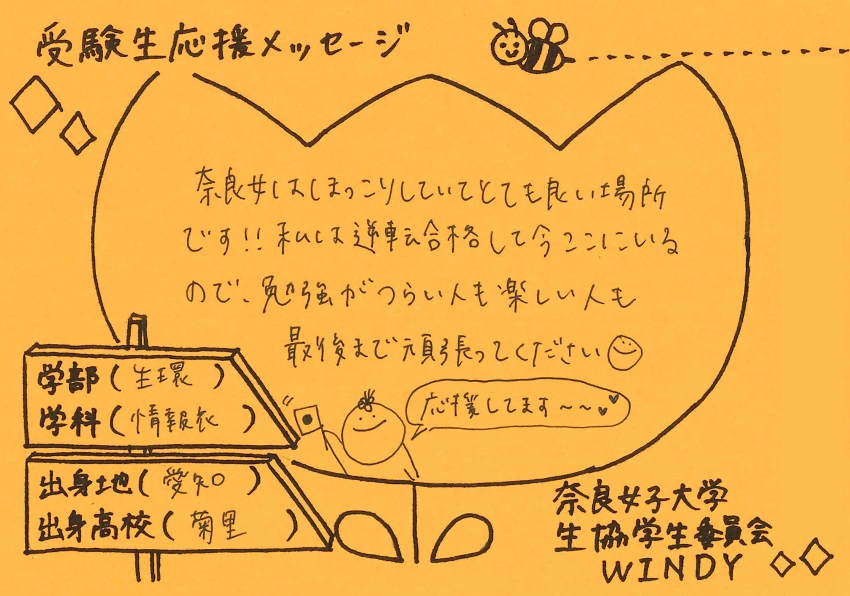 受験生応援メッセージ
奈良女はほっこりしていてとても良い場所
です!! 私は逆転合格して今ここにいる
ので、勉強がつらい人も楽しい人も
最後まで頑張ってください
応援してます〜〜
学部(生環)
学科(情報衣)
出身地(愛知)
出身高校(菊里)
奈良女子大学
生協学生委員会
WINDY